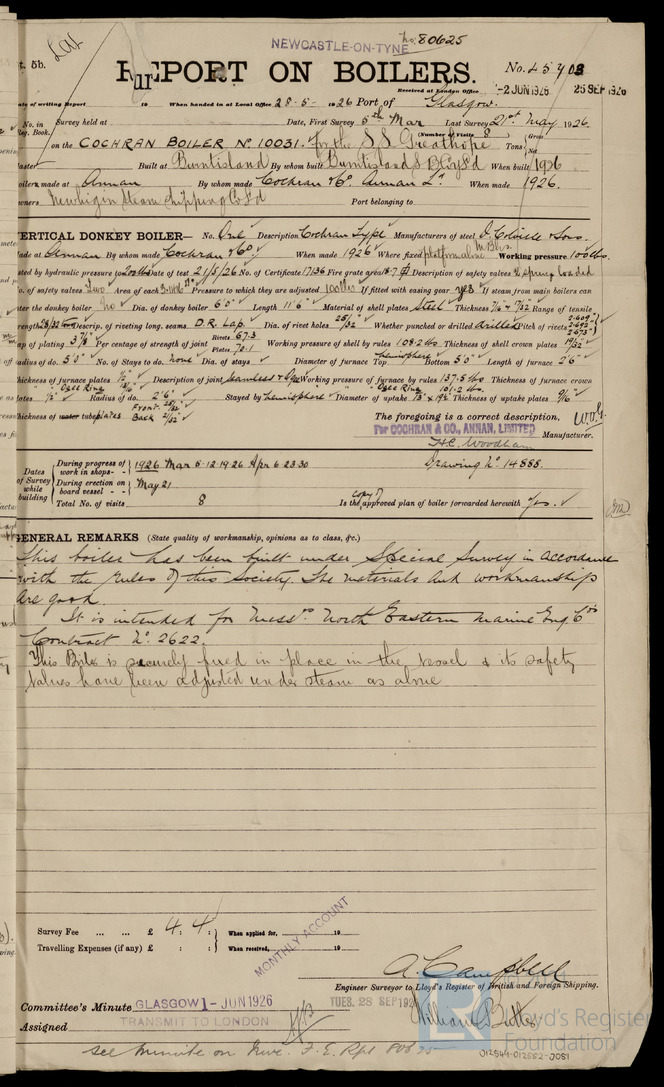 No. 80625
NEWCASTLE-ON-TYNE
Rpt. 5b.
REPORT ON BOILERS.
No. 45703
Received at London Office 2 JUN 1926 25 SEP 1926
Date of writing Report 19 When handed in at Local Office 28-5-1926 Port of Glasgow.
No. in Reg. Book. Survey held at Date, First Survey 5th Mar Last Survey 21st May 1926
(Number of Visits 8)
on the COCHRAN BOILER No 10031. for the S.S. Greathope Tons Gross Net
Master Built at Burntisland By whom built Burntisland S.B. Co Ld When built 1926
Boilers made at Annan By whom made Cochran & Co. Annan Ld. When made 1926.
Owners Steam Shipping Co Ld Port belonging to
VERTICAL DONKEY BOILER— No. One Description Cochran Type Manufacturers of steel D. Colville & Sons.
Made at Annan By whom made Cochran & Co. When made 1926 Where fixed platform Working pressure 100 lbs.
tested by hydraulic pressure to 200 lbs Date of test 21/5/26 No. of Certificate 17136 Fire grate area Description of safety valves spring loaded
No. of safety valves Two Area of each Pressure to which they are adjusted 100 lbs If fitted with easing gear yes If steam from main boilers can
enter the donkey boiler no Dia. of donkey boiler 6'0" Length 11'6" Material of shell plates Steel Thickness Range of tensile
strength 28/32 tons Descrip. of riveting long. seams D.R. Lap. Dia. of rivet holes 25/32" Whether punched or drilled drilled Pitch of rivets
Lap of plating 3 7/8" Per centage of strength of joint Rivets 67.3 Plates 70.1 Working pressure of shell by rules 108.2 lbs Thickness of shell crown plates 19/32
Radius of do. 5'0" No. of Stays to do. none Dia. of stays Diameter of furnace Top hemisphere Bottom 5'0" Length of furnace 2'6"
Thickness of furnace plates 1/2" Description of joint seamless Working pressure of furnace by rules 137.5 lbs Thickness of furnace crown
plates 1/2" Ogee Ring Radius of do. 2'6" Stayed by hemisphere Diameter of uptake Thickness of uptake plates 9/16"
Thickness of water tubeplates Front 25/32" Back 21/32"
The foregoing is a correct description,
For COCHRAN & CO., ANNAN, LIMITED
H.C. Woodham Manufacturer.
Dates of Survey while building
During progress of work in shops 1926 Mar 5-12-19-26 Apr 6-23-30 Drawing No. 14555.
During erection on board vessel May 21
Total No. of visits 8 Is the copy of approved plan of boiler forwarded herewith Yes.
GENERAL REMARKS (State quality of workmanship, opinions as to class, &c.)
This boiler has been built under Special Survey in accordance
with the Rules of this Society. The materials and workmanship
are good.
It is intended for Messrs North Eastern Marine Eng. Co's
Contract No. 2622.
This Boiler is securely fixed in place in the vessel & its safety
valves have been adjusted under steam as above
Survey Fee ... ... £ 4 : 4 : When applied for, 19
Travelling Expenses (if any) £ : : When received, 19
MONTHLY ACCOUNT
A. Campbell
Engineer Surveyor to Lloyd's Register of British and Foreign Shipping.
William Butts
Committee's Minute GLASGOW 1-JUN 1926 TUES. 28 SEP 1926
Assigned TRANSMIT TO LONDON
see minute on F.E. Rpt
Lloyd's Register Foundation
012544-012552-0051